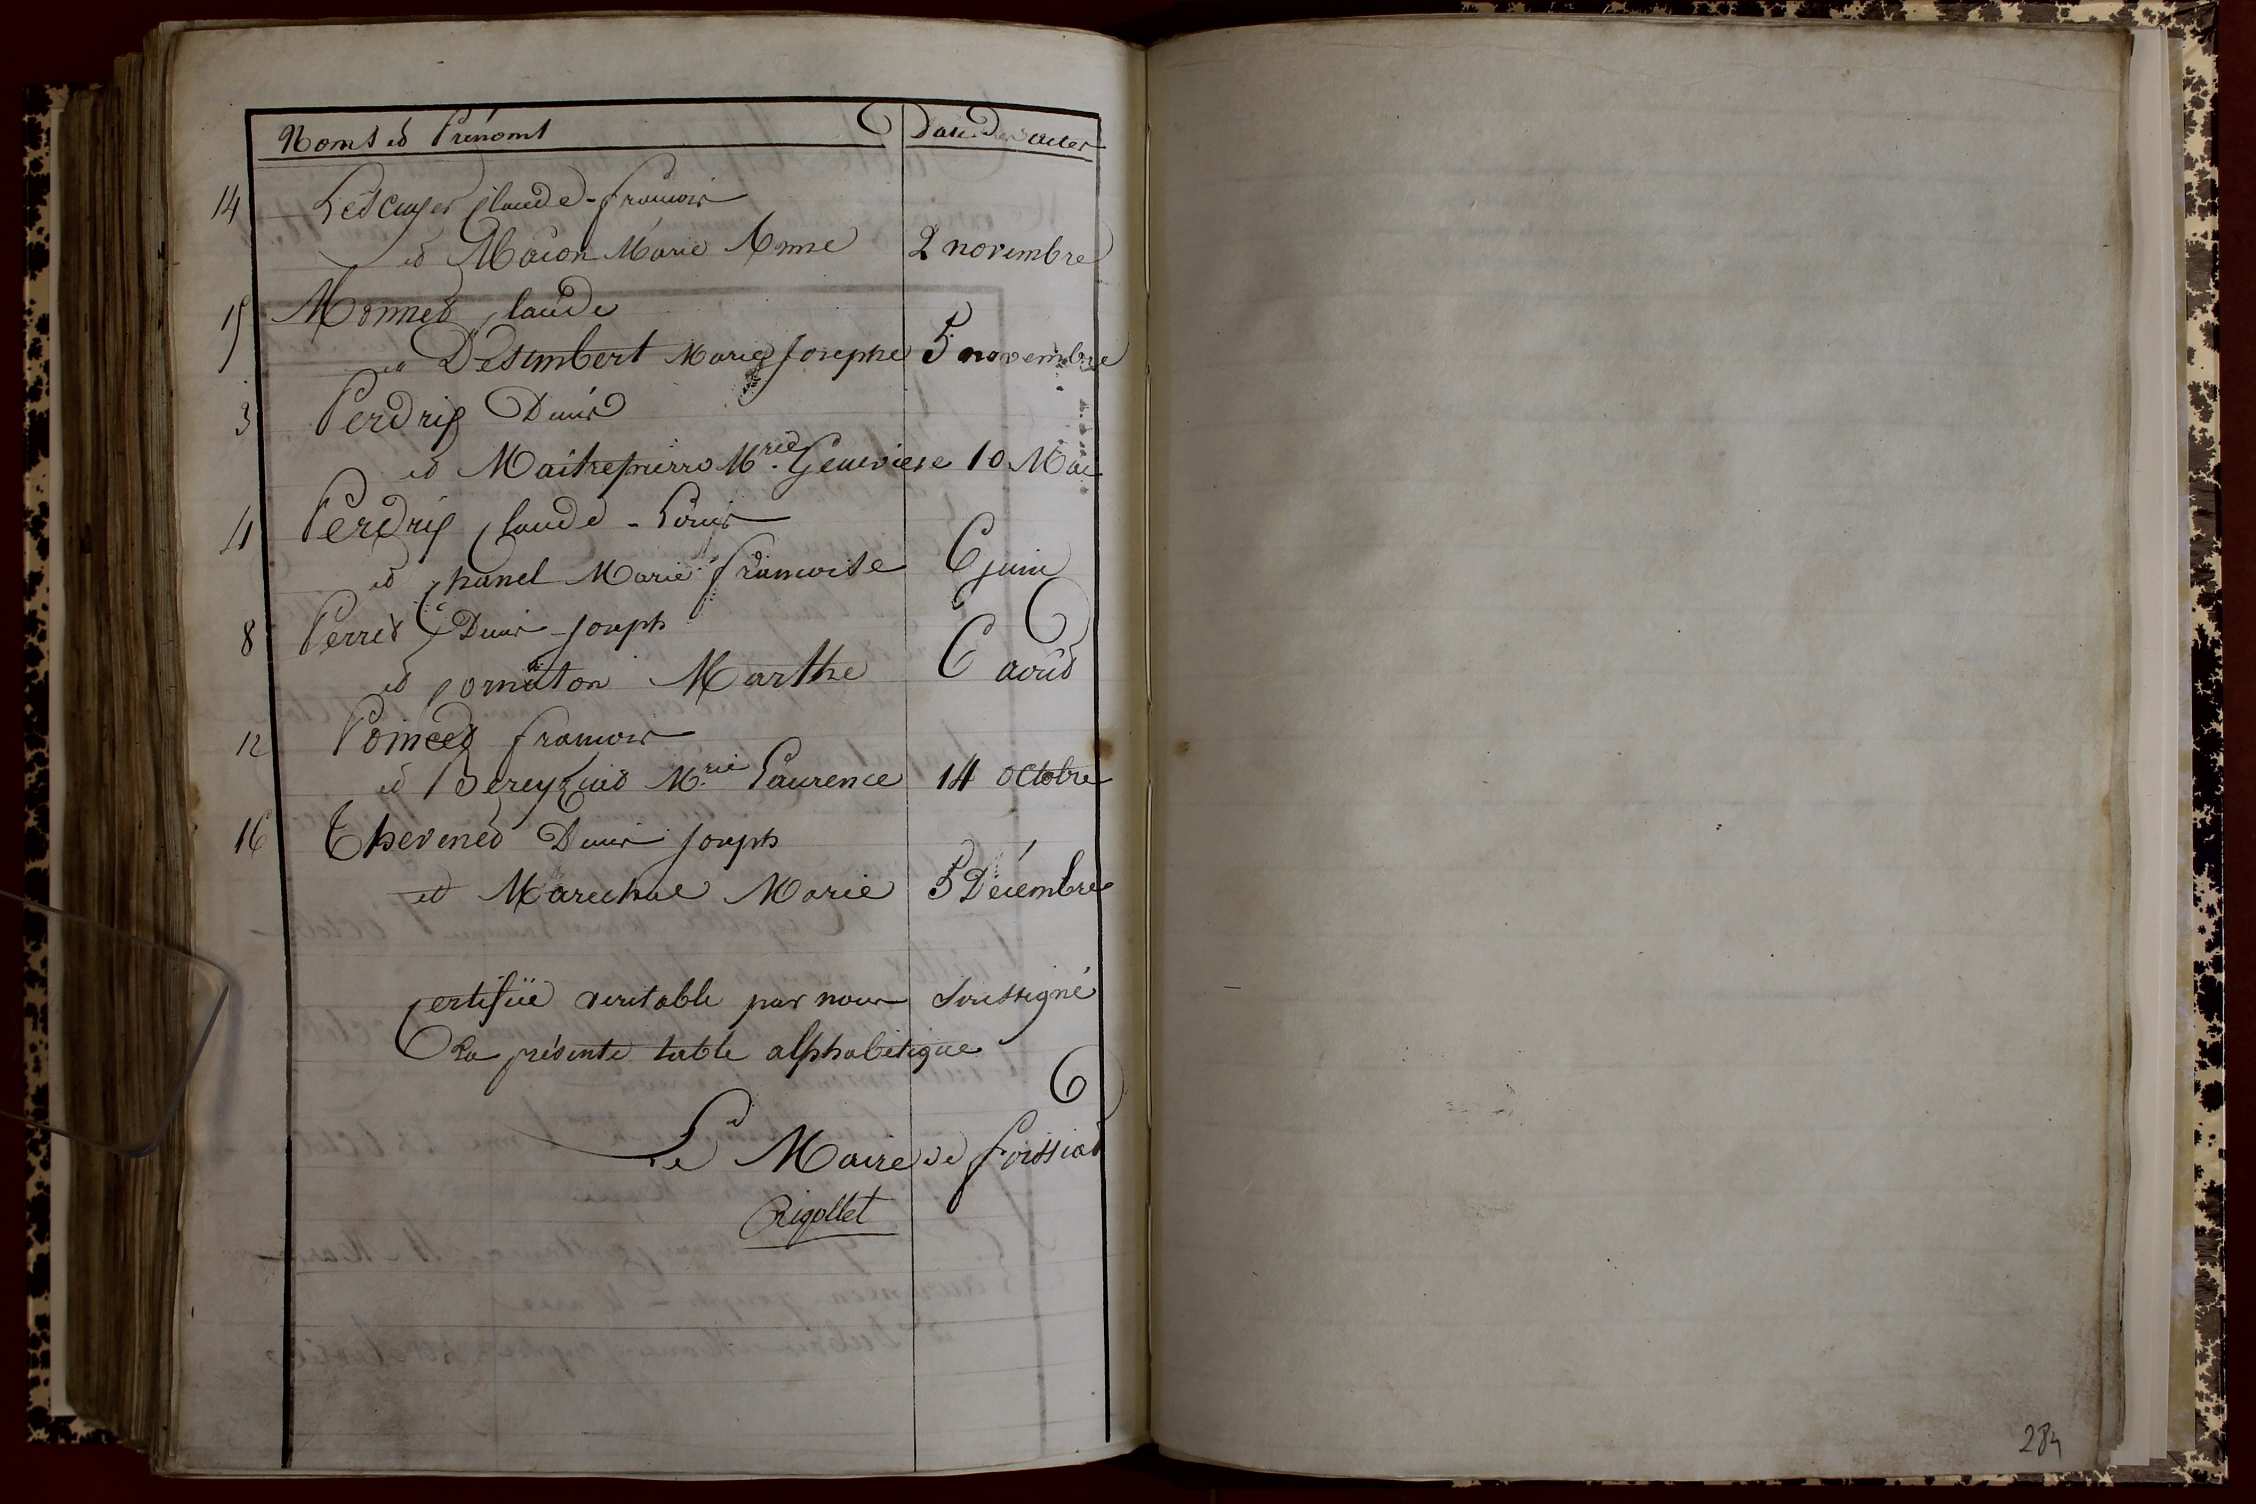 Noms et Prénoms Date des actes
14 Lescuyer Claude-françois
et Mâcon Marie Anne 2 novembre
15 Monnet Claude
et Desimbert Marie Josephe 5 novembre
3 Perdrix Denis
et Maitrepierre Mrie Genevieve 10 Mai
4 Perdrix Claude-Louis
et Chanel Marie françoise 6 juin
8 Perret Denis-Joseph
et Cornaton Marthe 6 août
12 Poincet françois
et Bereyziat Mrie Laurence 14 octobre
16 Thevenet Denis Joseph
et Marechal Marie 5 Décembre
Certifiée veritable par nous soussigné
la présente table alphabétique
Le Maire de foissiat
Rigollet
284